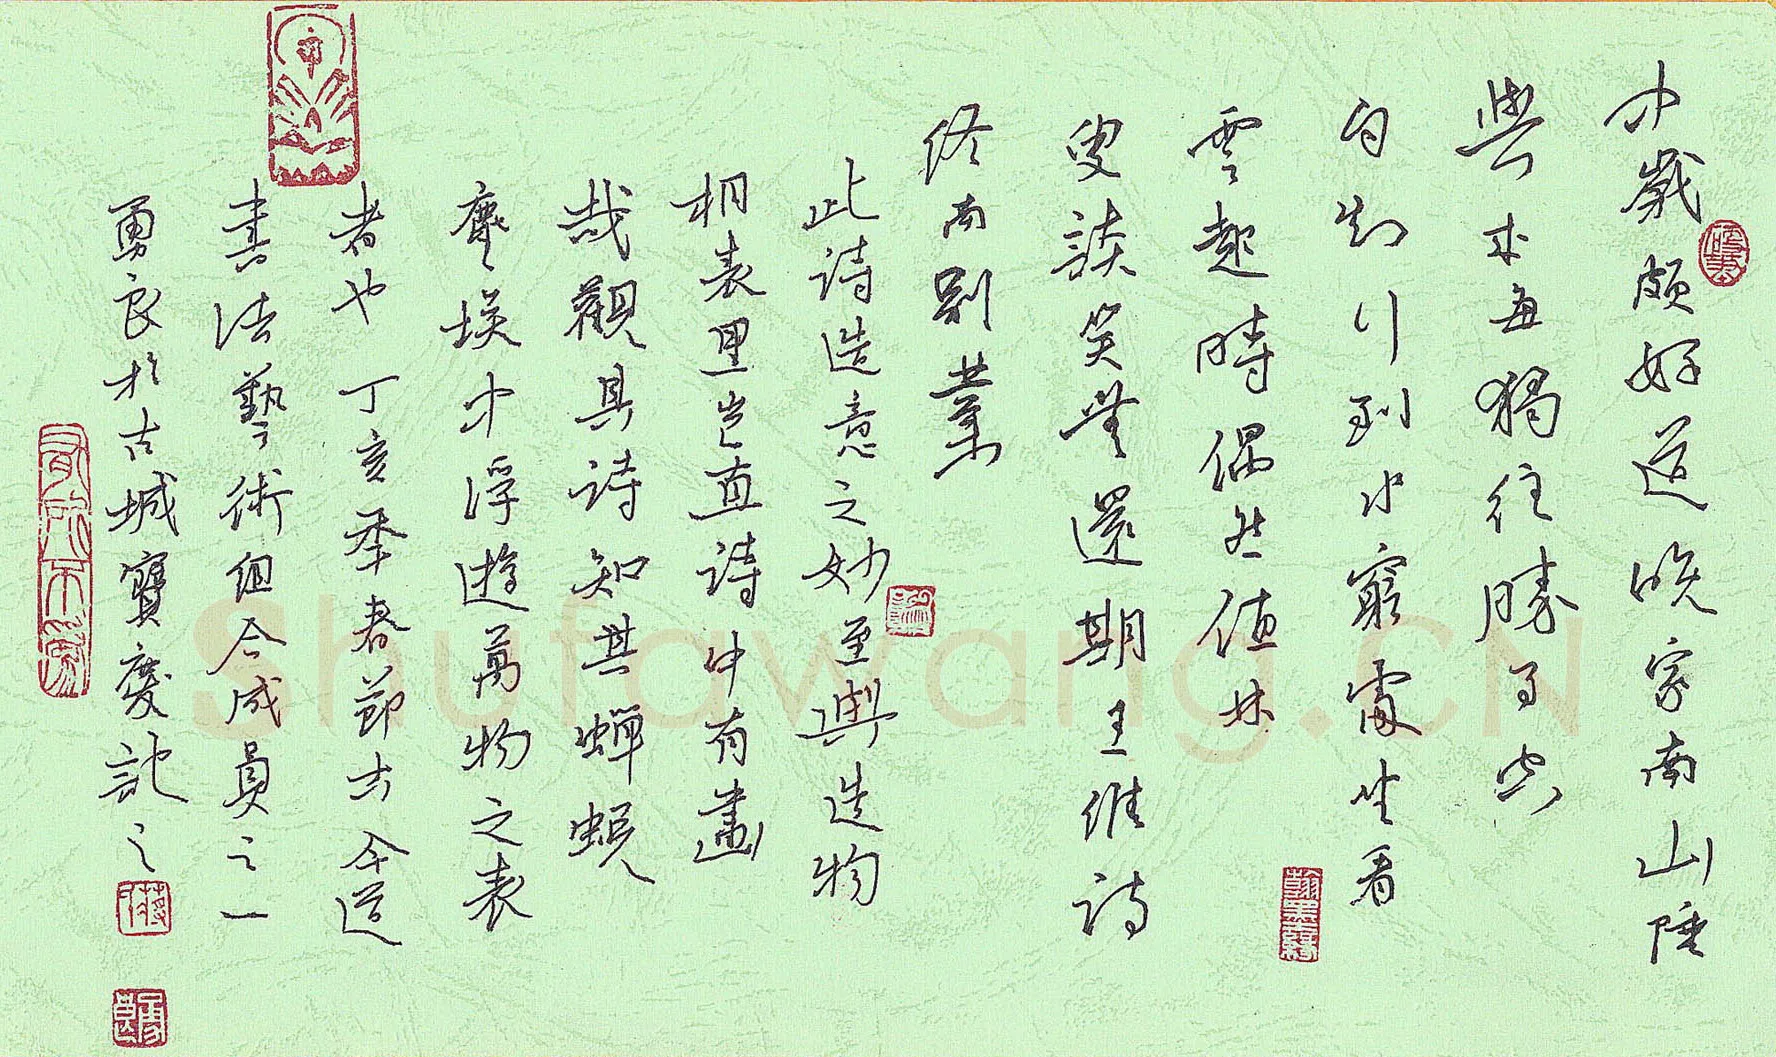 中歲頗好道晚家南山陲
興来每獨往勝事空
自知行到水窮處坐看
雲起時偶然值林
叟談笑無還期王維詩
终南別業
此詩造意之妙至與造物
相表里豈直詩中有畫
哉觀其詩知其蟬蜕
塵埃中浮遊萬物之表
者也丁亥季春節古今道
書法藝術組合成員之一
勇良於古城寶慶記之
翰墨緣
Shufawang.CN